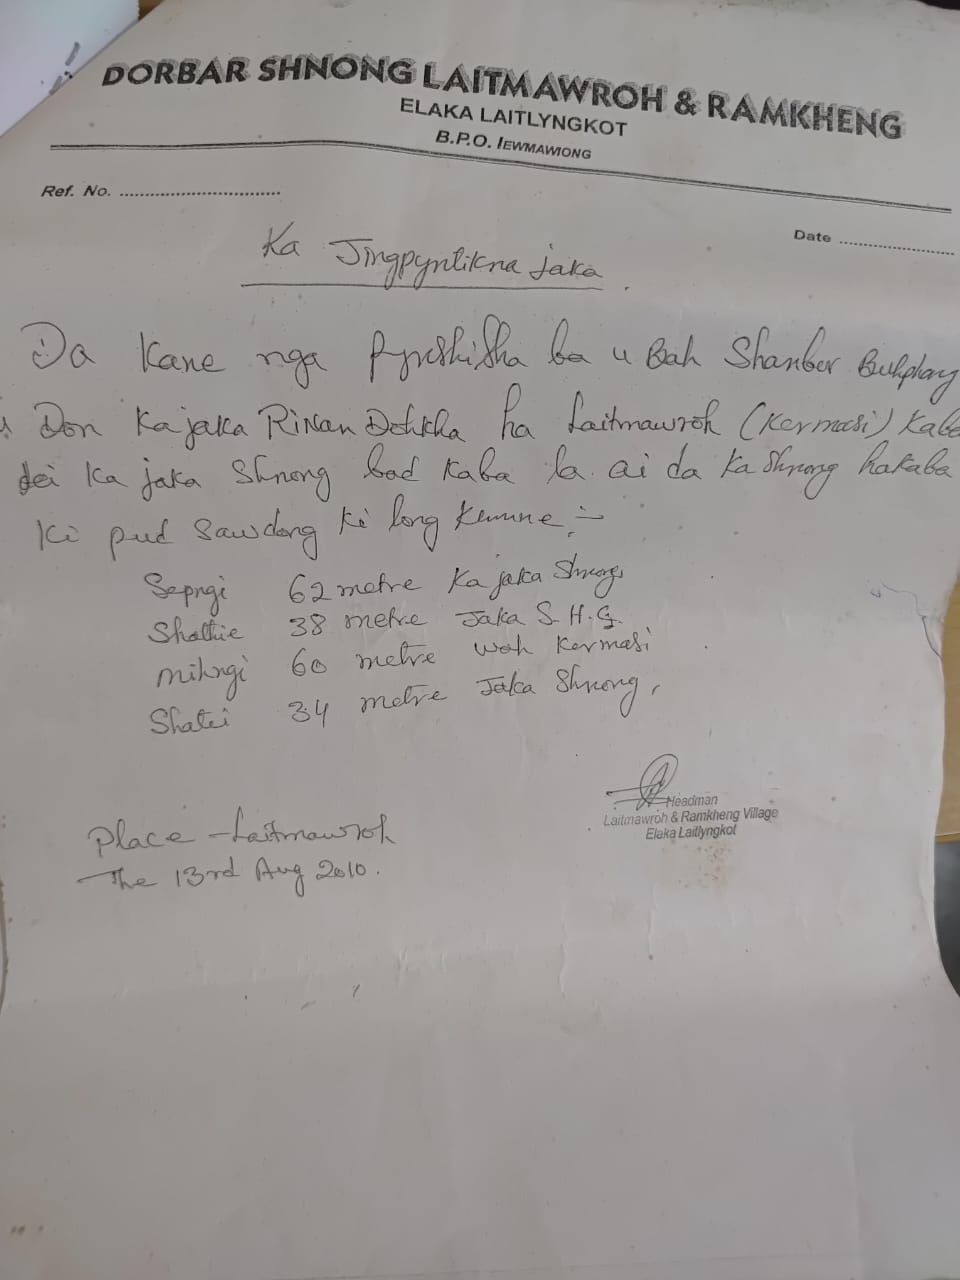 DORBAR SHNONG LAITMAWROH & RAMKHENG
ELAKA LAITLYNGKOT
B.P.O. IEWMAWIONG
Ref. No. ................................
Date ........................
Ka Jingpyntikna jaka.
Da Kane nga pynshisha ba u Bah Shanbor Buhphang
u Don Ka jaka Ri Nan Dohkha ha Laitmawroh (Kermasi) Kaba
dei Ka jaka Shnong bad Kaba la ai da Ka Shnong hakaba
Ki pud sawdong Ki long Kumne :-
Sepngi 62 metre Ka jaka Shnong
Shathie 38 metre Jaka S.H.G.
mihngi 60 metre wah Kermasi
Shatei 34 metre Jaka Shnong,
Headman
Laitmawroh & Ramkheng Village
Elaka Laitlyngkot
Place - Laitmawroh
The 13rd Aug 2010.